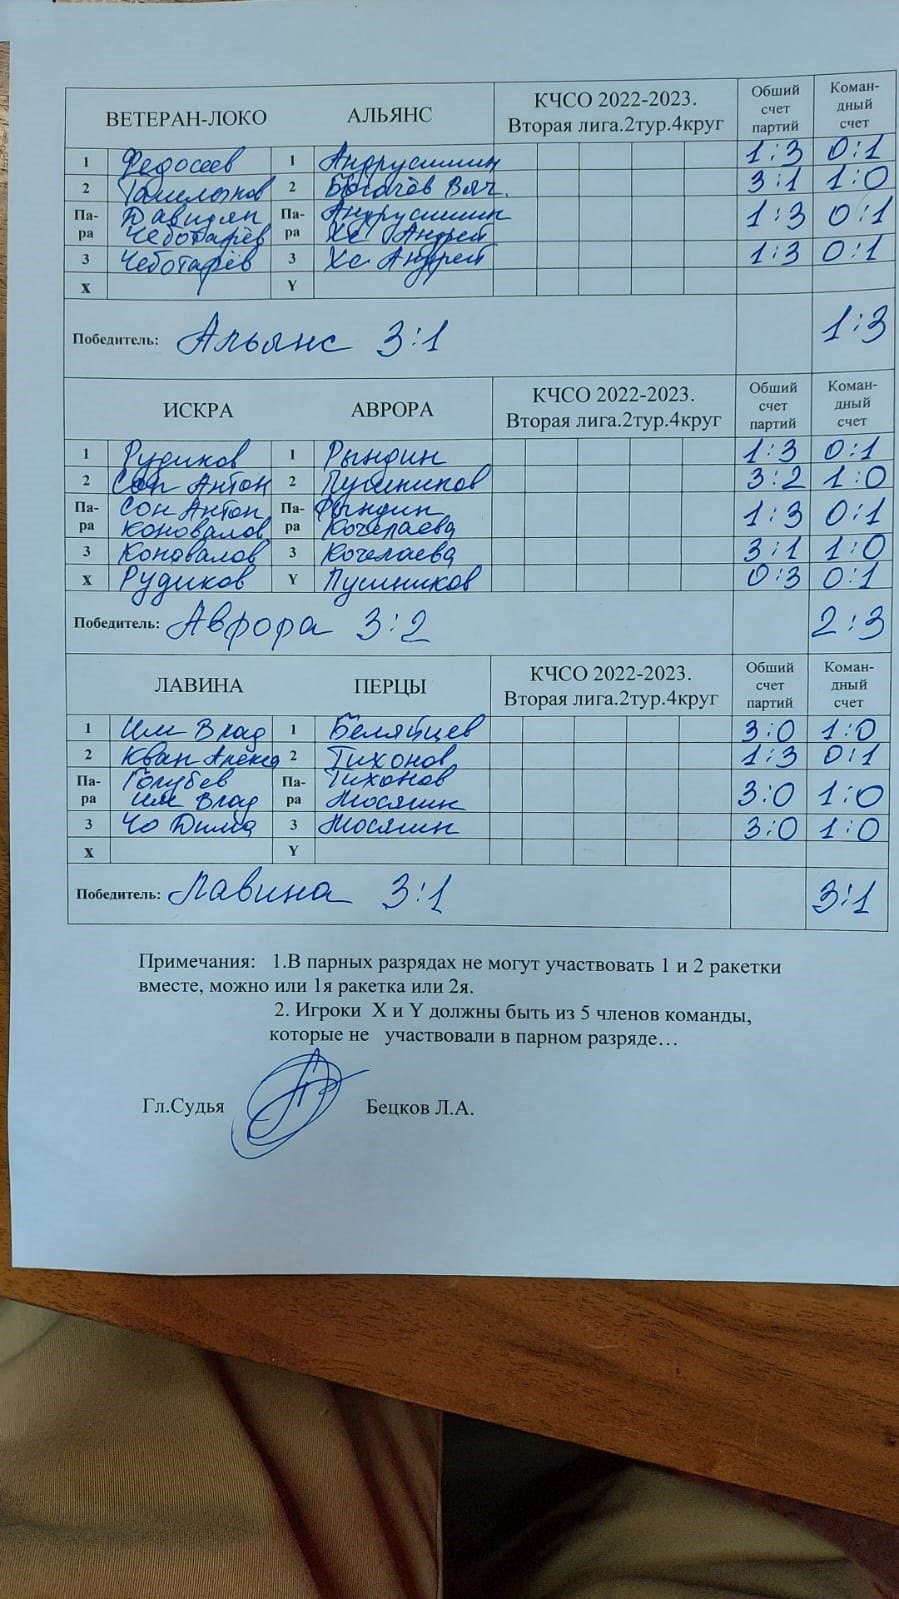 ВЕТЕРАН-ЛОКО АЛЬЯНС КЧСО 2022-2023. Вторая лига.2тур.4круг Обший счет партий Коман-дный счет
1 Федосеев 1 Андрусишин 1:3 0:1
2 2 Богачёв Вяч. 3:1 1:0
Па-ра Давидян Чеботарёв Па-ра Андрусишин Хе Андрей 1:3 0:1
3 Чеботарёв 3 Хе Андрей 1:3 0:1
X Y
Победитель: Альянс 3:1 1:3
ИСКРА АВРОРА КЧСО 2022-2023. Вторая лига.2тур.4круг Обший счет партий Коман-дный счет
1 Рудиков 1 Рындин 1:3 0:1
2 Сон Антон 2 Пушников 3:2 1:0
Па-ра Сон Антон Коновалов Па-ра Рындин Кочелаева 1:3 0:1
3 Коновалов 3 Кочелаева 3:1 1:0
X Рудиков Y Пушников 0:3 0:1
Победитель: Аврора 3:2 2:3
ЛАВИНА ПЕРЦЫ КЧСО 2022-2023. Вторая лига.2тур.4круг Обший счет партий Коман-дный счет
1 Им Влад 1 Беляйцев 3:0 1:0
2 Кван 2 Тихонов 1:3 0:1
Па-ра Голубев Им Влад Па-ра Тихонов Мосягин 3:0 1:0
3 Чо Дима 3 Мосягин 3:0 1:0
X Y
Победитель: Лавина 3:1 3:1
Примечания: 1.В парных разрядах не могут участвовать 1 и 2 ракетки
вместе, можно или 1я ракетка или 2я.
2. Игроки X и Y должны быть из 5 членов команды,
которые не участвовали в парном разряде…
Гл.Судья Бецков Л.А.